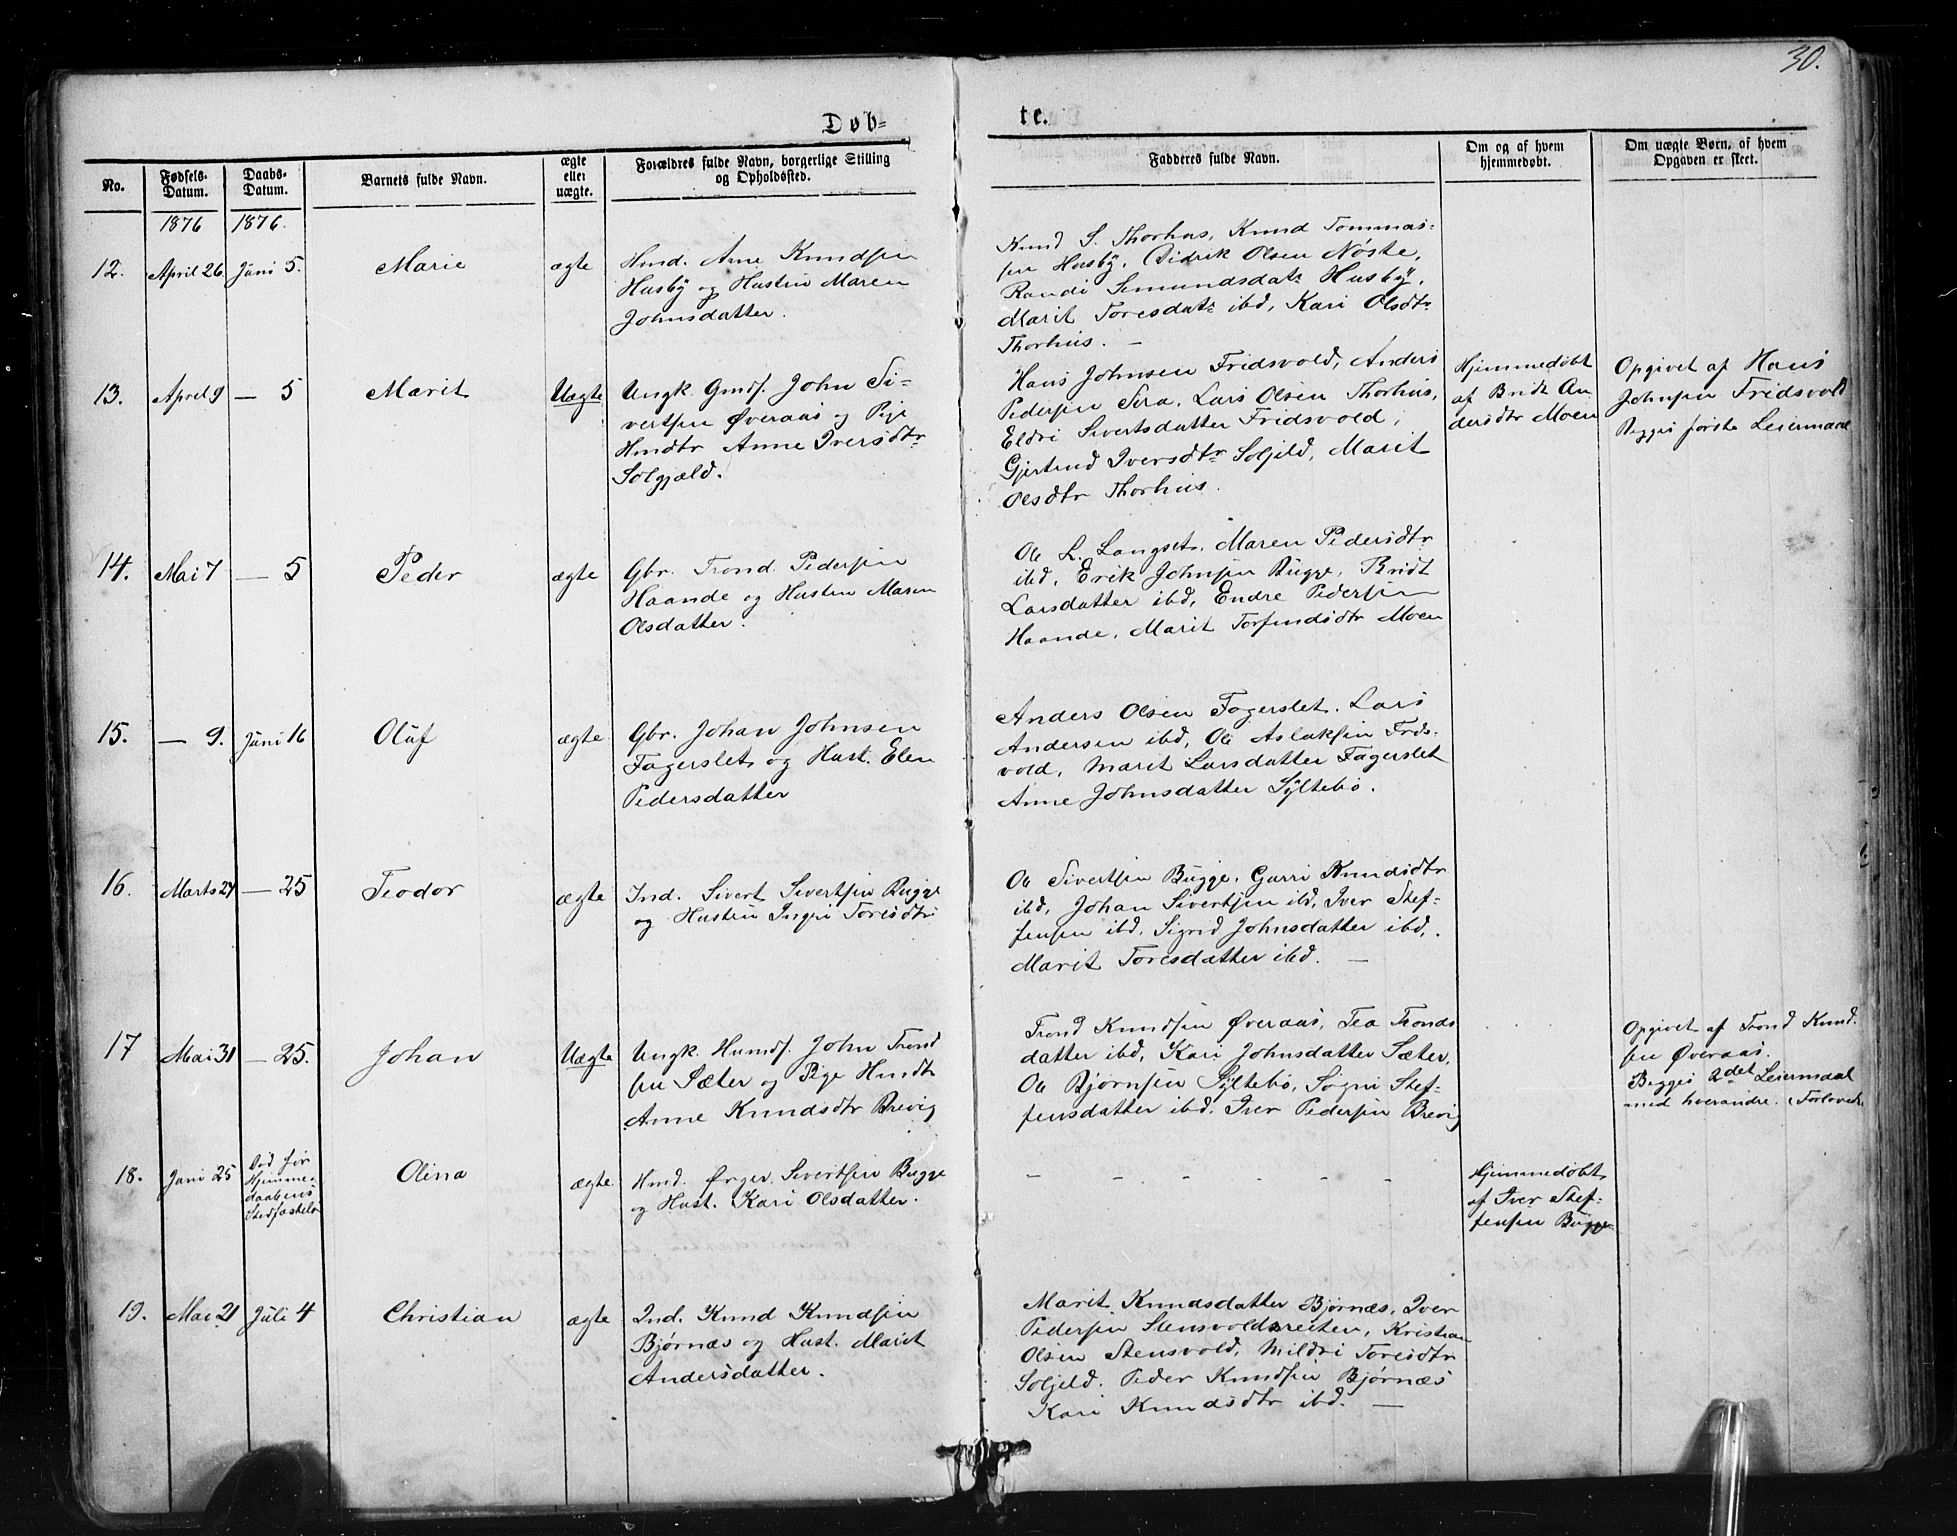 30.
Døb-
te.
No.
Fødsels-
Datum.
Daabs-
Datum.
Barnets fulde Navn.
ægte
eller
uægte.
Forældres fulde Navn, borgerlige Stilling
og Opholdssted.
Fadderes fulde Navn.
Om og af hvem
hjemmedøbt.
Om uægte Børn, af hvem
Opgaven er skeet.
1876
1876.
12.
April 26
Juni 5.
Marie
ægte
Hmd. Arne Knudsen
Husby og Hustru Maren
Johnsdatter.
Knud S. Thorhus, Knud Tommas-
sen Husby, Didrik Olsen Nøste,
Randi Simundsdatr Husby,
Marit Toresdatr ibd, Kari Olsdtr
Thorhus. —
13.
April 9
— 5
Marit
Uægte
Ungk. Gmdf. John Si-
vertsen Øveraas og Pige
Hmdtr Anne Iversdtr
Solgjæld.
Hans Johnsen Fridsvold, Anders
Pedersen Sira, Lars Olsen Thorhus,
Eldri Sivertsdatter Fridsvold,
Gjertrud Iversdtr Soljeld, Marit
Olsdtr Thorhus.
Hjemmedøbt
af Bridt An
dersdtr Moen
Opgivet af Hans
Johnsen Fridsvold
Begges første Leiermaal
14.
Mai 7
— 5
Peder
ægte
Gbr. Trond Pedersen
Haande og Hustru Maren
Olsdatter.
Ole L. Langset, Maren Pedersdtr
ibd, Erik Johnsen Bugge, Bridt
Larsdatter ibd, Endre Pedersen
Haande, Marit Torfindsdtr Moen
15.
— 9.
Juni 16
Oluf
ægte
Gbr. Johan Johnsen
Fagerslet og Hust. Elen
Pedersdatter
Anders Olsen Fagerslet, Lars
Andersen ibd, Ole Aslaksen Frids-
vold, Marit Larsdatter Fagerslet
Anne Johnsdatter Syltebø.
16.
Marts 27
— 25
Teodor
ægte
Ind. Sivert Sivertsen Bugge
og Hustru Ingri Toresdtr
Ole Sivertsen Bugge, Gurri Knudsdtr
ibd, Johan Sivertsen ibd, Iver Stef-
fensen ibd, Sigrid Johnsdatter ibd,
Marit Toresdatter ibd. —
17
Mai 31
— 25.
Johan
Uægte
Ungk. Husmdf. John Trond
sen Sæter og Pige Hmdtr
Anne Knudsdtr Brevig
Trond Knudsen Øveraas, Tea Tronds
datter ibd, Kari Johnsdatter Sæter,
Ole Bjørnsen Syltebø, Sogni Stef-
fensdatter ibd. Iver Pedersen Brevig
Opgivet af Trond Knud-
sen Øveraas.
Begges 2det Leiermaal
med hverandre. (Forlovede
18.
Juni 25
Død før
Hjemme-
daabens
Stadfæstelse
Olina
ægte
Hmd. Ørger Sivertsen Bugge
og Hust. Kari Olsdatter.
- - - - - -
Hjemmedøbt
af Iver Stef-
fensen Bugge
19.
Mai 21
Juli 4
Christian
ægte
Ind. Knud Knudsen
Bjørnæs og Hust. Marit
Andersdatter.
Marit Knudsdatter Bjørnæs, Iver
Pedersen Stensvoldsreiten, Kristian
Olsen Stensvold, Mildri Toresdtr
Soljeld. Peder Knudsen Bjørnæs
Kari Knudsdtr ibd. —